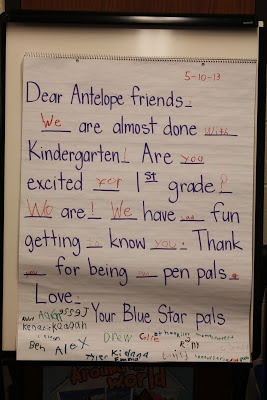 5-10-13
Dear Antelope friends,
We are almost done with
Kindergarten! Are you
excited for 1st grade?
We are! We have had fun
getting to know you. Thank
you for being our pen pals.
Love,
Your Blue Star pals
Keagan
Drew
Ben Alex
Tyler Emma
Around the
world